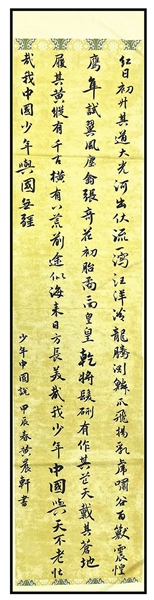 紅日初升其道大光河出伏流一瀉汪洋潛龍騰淵鱗爪飛揚乳虎嘯谷百獸震惶
鷹隼試翼風塵翕張奇花初胎矞矞皇皇乾將發硎有作其芒天戴其蒼地
履其黄縱有千古橫有八荒前途似海來日方長美哉我少年中國與天不老壯
哉我中國少年與國無疆
少年中國說 甲辰春黄晨軒書